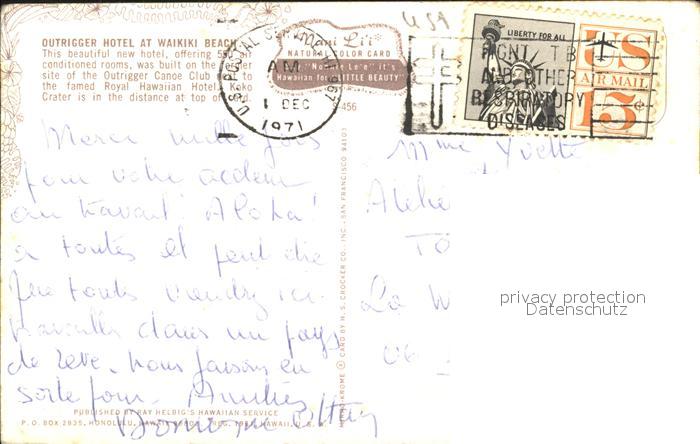 OUTRIGGER HOTEL AT WAIKIKI BEACH
This beautiful new hotel, offering 5 air
conditioned rooms, was built on the former
site of the Outrigger Canoe Club next to
the famed Royal Hawaiian Hotel. Koko
Crater is in the distance at top of card.
Nani Li'i
NATURAL COLOR CARD
"Nannie Lee" it's
Hawaiian for "LITTLE BEAUTY"
456
U.S. POSTAL
AM
1 DEC
1971
USA
FIGHT TB
AND OTHER
RESPIRATORY
DISEASES
LIBERTY FOR ALL
US
AIR MAIL
15c
Merci mille fois
pour votre
au travail! Aloha!
à toutes et peut être
que toutes viendrez ici
travailler dans un pays
de rêve. nous faisons en
sorte pour. Amitiés
Mme Yvette
Atelie
TO
La W
06
privacy protection
Datenschutz
MIRRO-KROME ® CARD BY H. S. CROCKER CO., INC., SAN FRANCISCO 94103
PUBLISHED BY RAY HELBIG'S HAWAIIAN SERVICE
P. O. BOX 2835, HONOLULU, HAWAII, U. S. A.